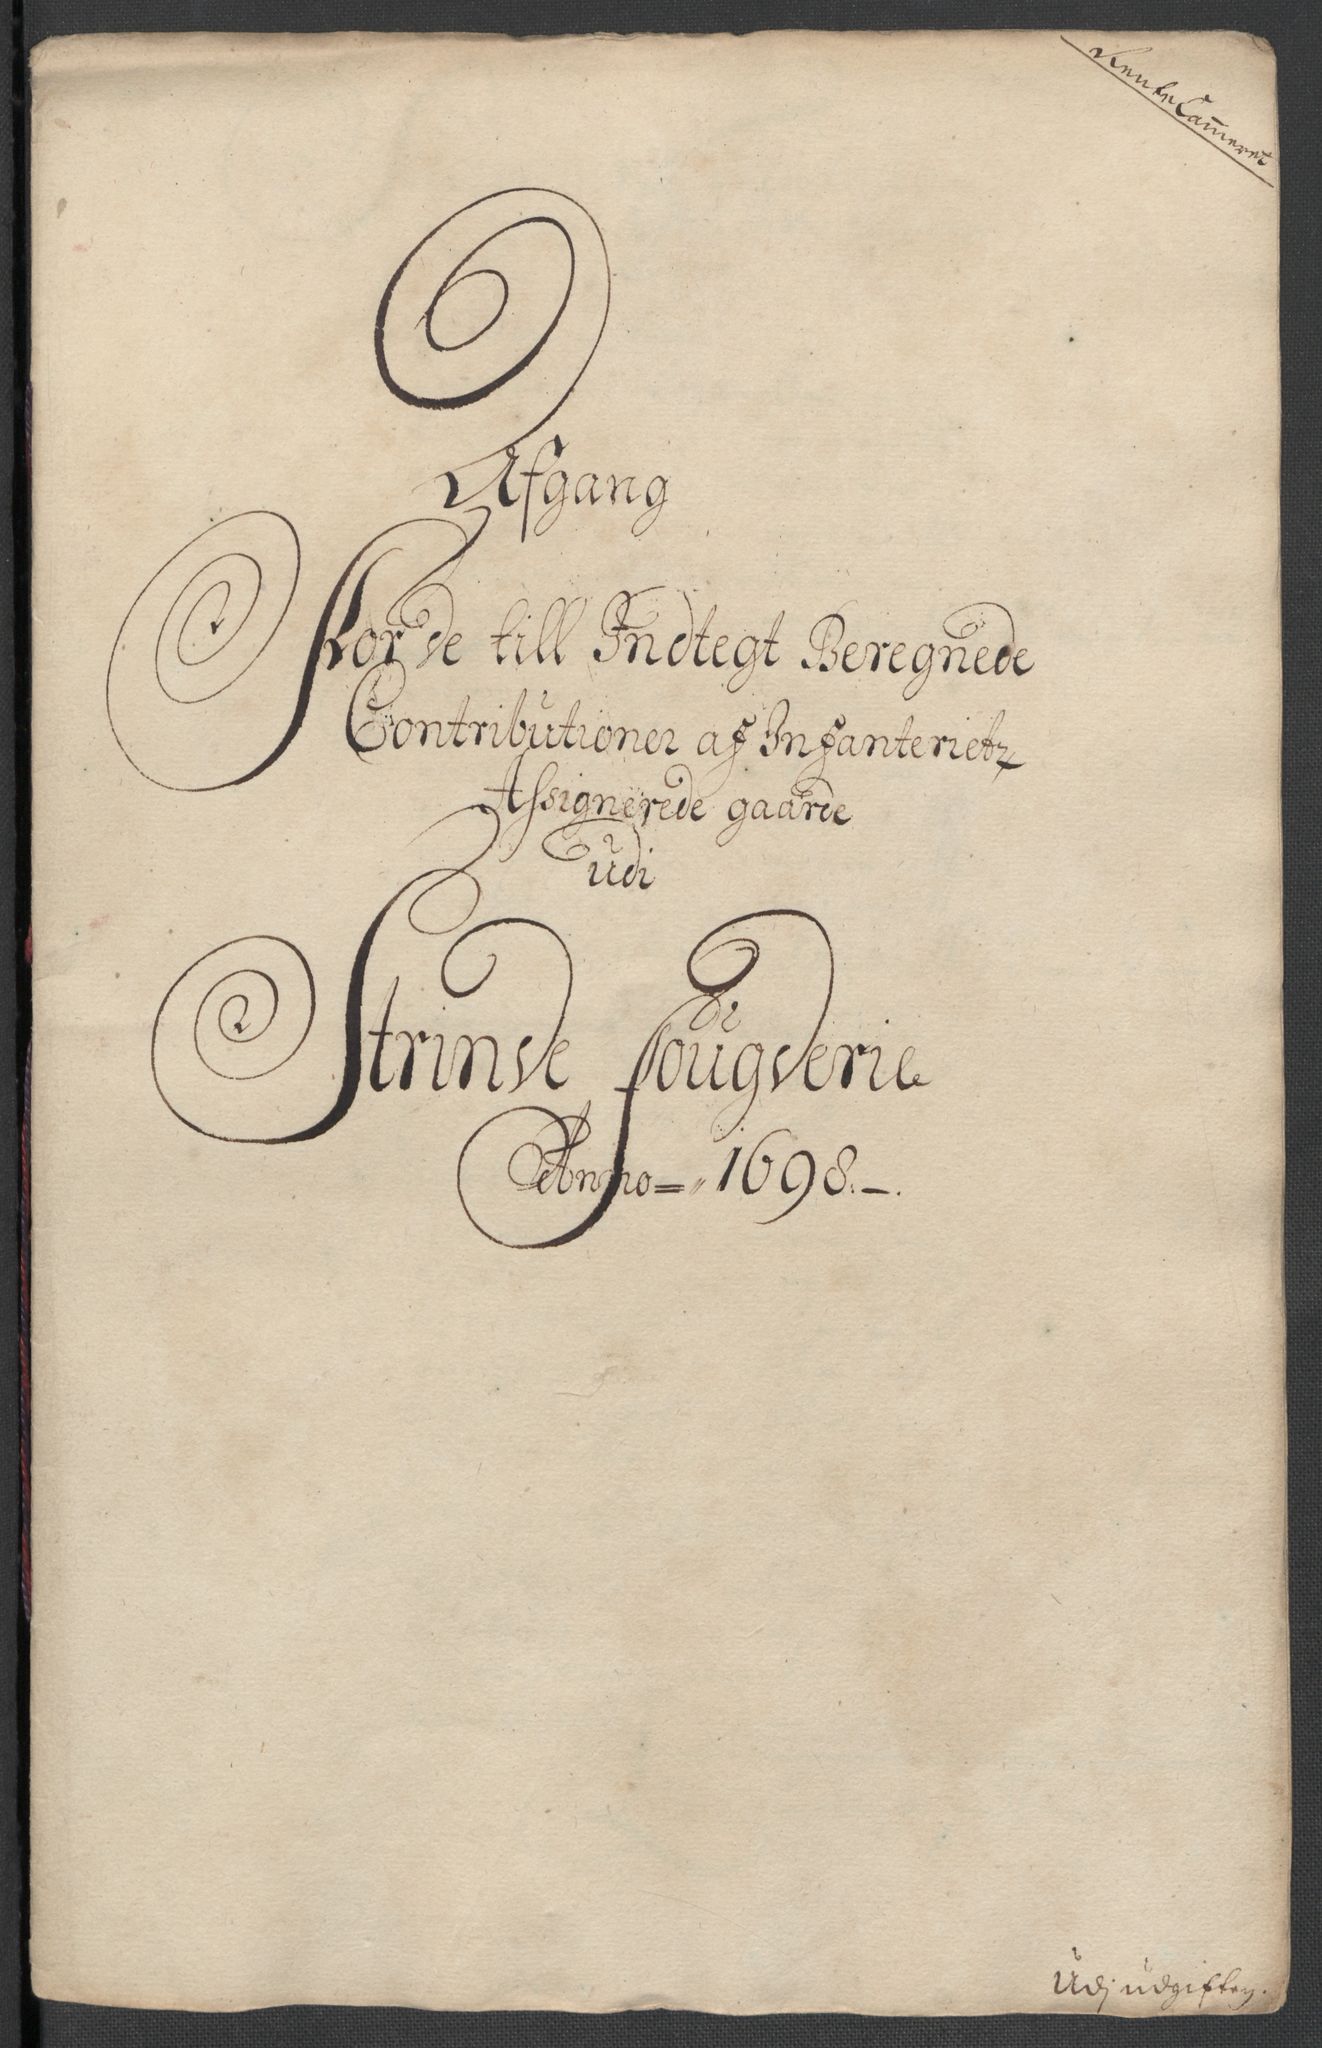 Rente Cam̄eret
Afgang
For de till Indtegt Beregnede
Contributioner af Infanterietz
Assignerede gaarde
udi
Strinde fougderie
Anno = 1698. -.
Udj udgiften.